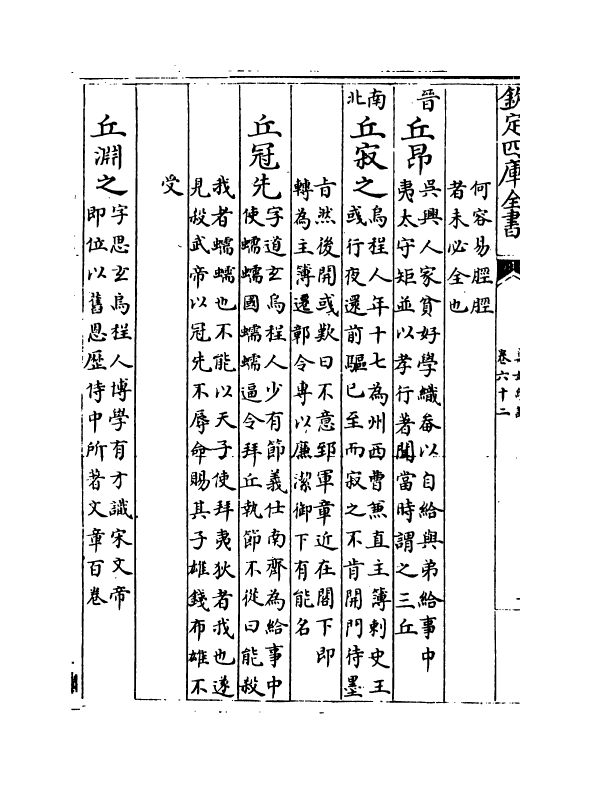 欽定四庫全書
卷六十二
何容易脛脛
者未必全也
晉
丘昂
吳興人家貧好學織畚以自給與弟給事中
夷太守矩並以孝行著聞當時謂之三丘
南北
丘寂之
烏程人年十七為州西曹兼直主簿刺史王
或行夜還前驅已至而寂之不肯開門待墨
㫖然後開或歎曰不意郅軍章近在閤下即
轉為主簿還鄣令專以廉潔御下有能名
丘冠先
字道玄烏程人少有節義仕南齊為給事中
使蠕蠕國蠕蠕逼令拜丘執節不從曰能殺
我者蠕蠕也不能以天子使拜夷狄者我也遂
見殺武帝以冠先不辱命賜其子雄錢布雄不
受
丘淵之
字思玄烏程人博學有才識宋文帝
即位以舊恩歴侍中所著文章百卷